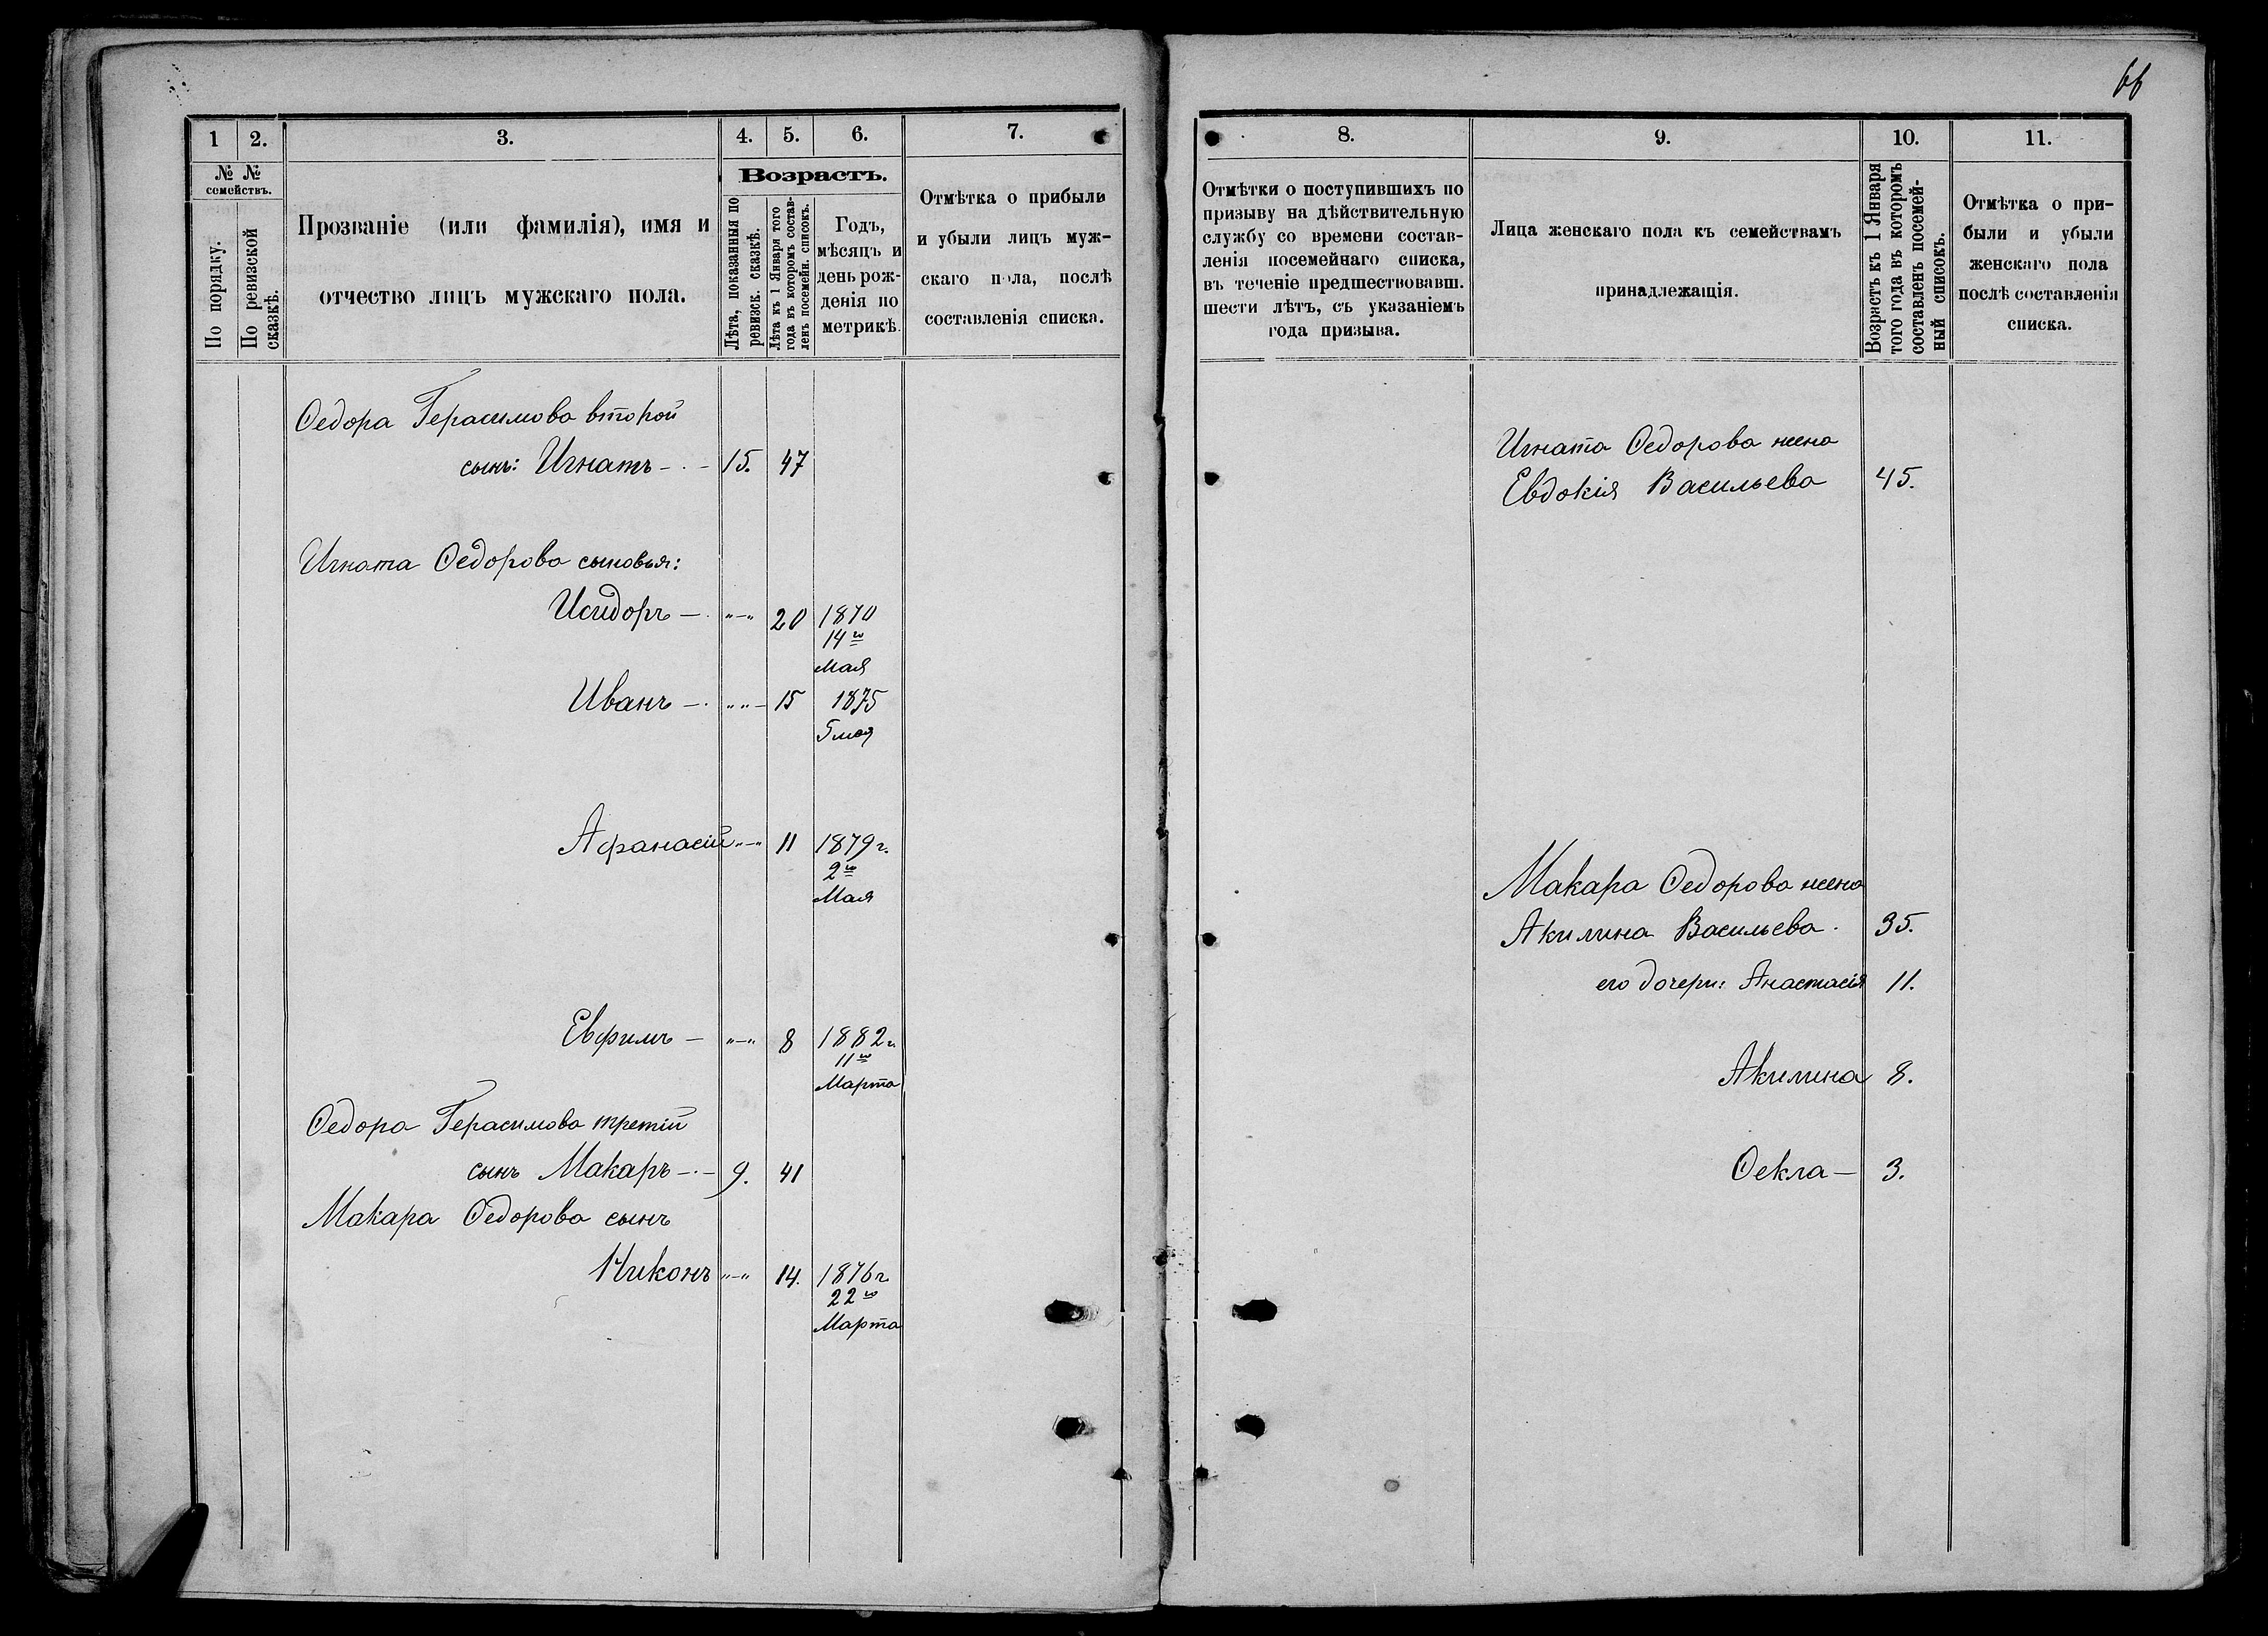 66
1
2.
3.
4.
5.
6.
7.
№ №
семействъ.
По порядку.
По ревизской
сказкѣ.
Прозваніе (или фамилія), имя и
отчество лицъ мужскаго пола.
Возрастъ.
Лѣта, показанныя по
ревизск. сказкѣ.
Лѣта къ 1 Января того
года въ которомъ состав-
ленъ посемейн. списокъ.
Годъ,
мѣсяцъ и
день рож-
денія по
метрикѣ.
Отмѣтка о прибыли
и убыли лицъ муж-
скаго пола, послѣ
составленія списка.
Ѳедора Герасимова второй
сынъ: Игнатъ - . - 15. 47
Игната Ѳедорова сыновья:
Исидоръ - . "-" 20 1870
14го
Мая
Иванъ - . " " - 15 1875
5 мая
Афанасій "-" 11 1879 г.
2го
Мая
Евфимъ - "-" 8 1882 г.
11го
Марта
Ѳедора Герасимова третій
сынъ Макаръ - . - 9. 41
Макара Ѳедорова сынъ
Никонъ "-" 14. 1876 г
22го
Марта
8.
9.
10.
11.
Отмѣтки о поступившихъ по
призыву на дѣйствительную
службу со времени состав-
ленія посемейнаго списка,
въ теченіе предшествовавш.
шести лѣтъ, съ указаніемъ
года призыва.
Лица женскаго пола къ семействамъ
принадлежащія.
Возрастъ къ 1 Января
того года въ которомъ
составленъ посемей-
ный списокъ.
Отмѣтка о при-
были и убыли
женскаго пола
послѣ составленія
списка.
Игната Ѳедорова жена
Евдокія Васильева 45.
Макара Ѳедорова жена
Акилина Васильева . 35.
его дочери: Анастасія 11.
Акилина 8.
Ѳекла - 3.